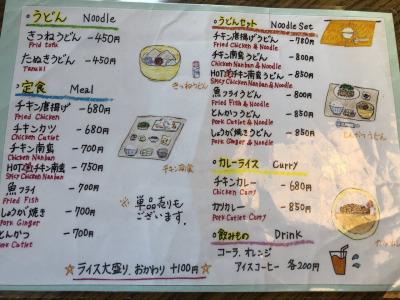 うどん Noodle
きつねうどん - 450円
Fried tofu
たぬきうどん - 450円
Tanuki
きつねうどん
定食 Meal
チキン唐揚げ - 680円
Fried Chicken
チキンカツ - 680円
Chicken Cutlet
チキン南蛮 - 700円
Chicken Nanban
HOTチキン南蛮 - 750円
Spicy Chicken Nanban
魚フライ - 700円
Fried Fish
しょうが焼き - 700円
Pork Ginger
とんかつ - 700円
Pork Cutlet
チキン南蛮
※単品売りも
ございます。
☆ライス大盛り、おかわり +100円☆
うどんセット Noodle Set
チキン唐揚げうどん - 780円
Fried Chicken & Noodle
チキン南蛮うどん - 800円
Chicken Nanban & Noodle
HOTチキン南蛮うどん - 850円
Spicy Chicken Nanban & Noodle
魚フライうどん - 800円
Fried Fish & Noodle
とんかつうどん - 800円
Pork Cutlet & Noodle
しょうが焼きうどん - 800円
Pork Ginger & Noodle
とんかつうどん
カレーライス Curry
チキンカレー - 680円
Chicken Curry
カツカレー - 850円
Pork Cutlet Curry
飲みもの Drink
コーラ、オレンジ
アイスコーヒー 各200円